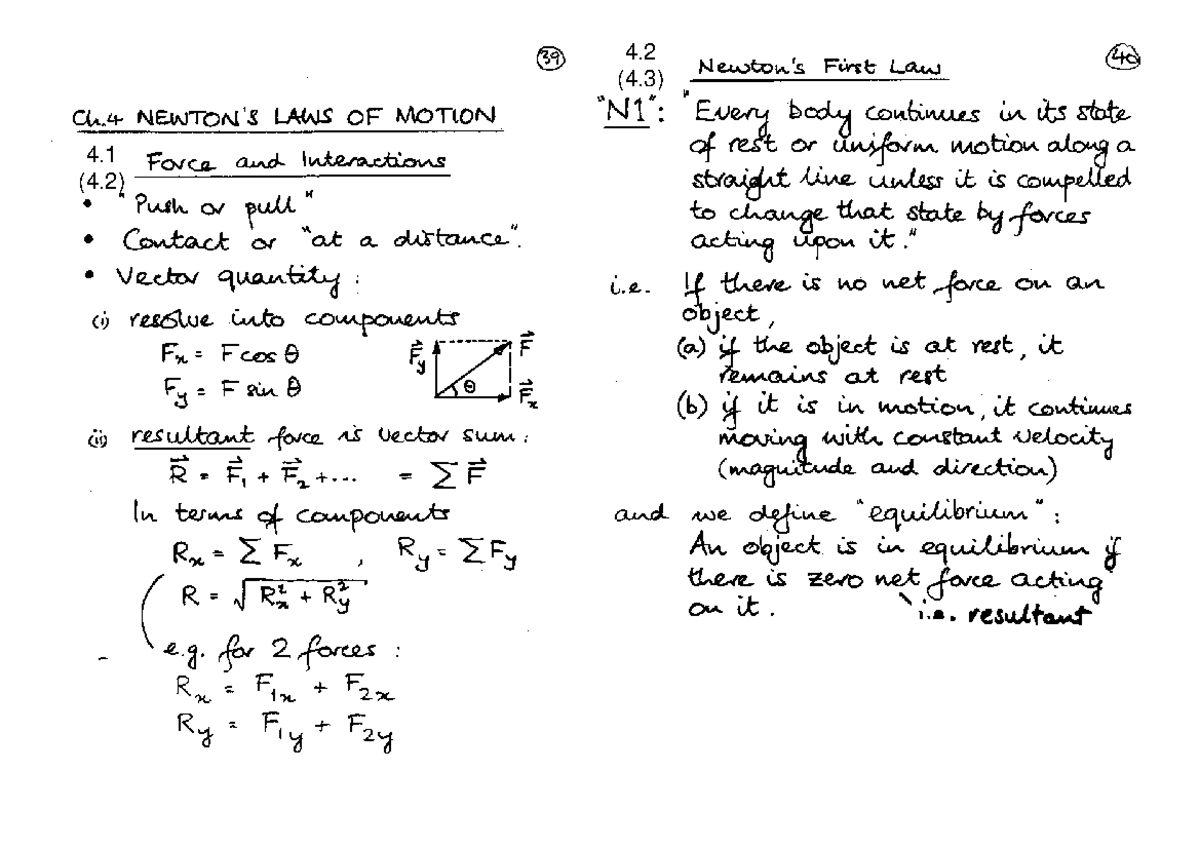 39
Ch.4 NEWTON'S LAWS OF MOTION
4.1 Force and Interactions
(4.2)
• "Push or pull"
• Contact or "at a distance".
• Vector quantity:
(i) resolve into components
Fx = F cos θ
Fy = F sin θ
F⃗y F⃗
θ F⃗x
(ii) resultant force is vector sum:
R⃗ = F⃗1 + F⃗2 + ... = ∑ F⃗
In terms of components
Rx = ∑ Fx , Ry = ∑ Fy
R = √(Rx² + Ry²)
e.g. for 2 forces:
Rx = F1x + F2x
Ry = F1y + F2y
40
4.2 Newton's First Law
(4.3)
"N1": "Every body continues in its state
of rest or uniform motion along a
straight line unless it is compelled
to change that state by forces
acting upon it."
i.e. If there is no net force on an
object,
(a) if the object is at rest, it
remains at rest
(b) if it is in motion, it continues
moving with constant velocity
(magnitude and direction)
and we define "equilibrium":
An object is in equilibrium if
there is zero net force acting
on it. i.e. resultant